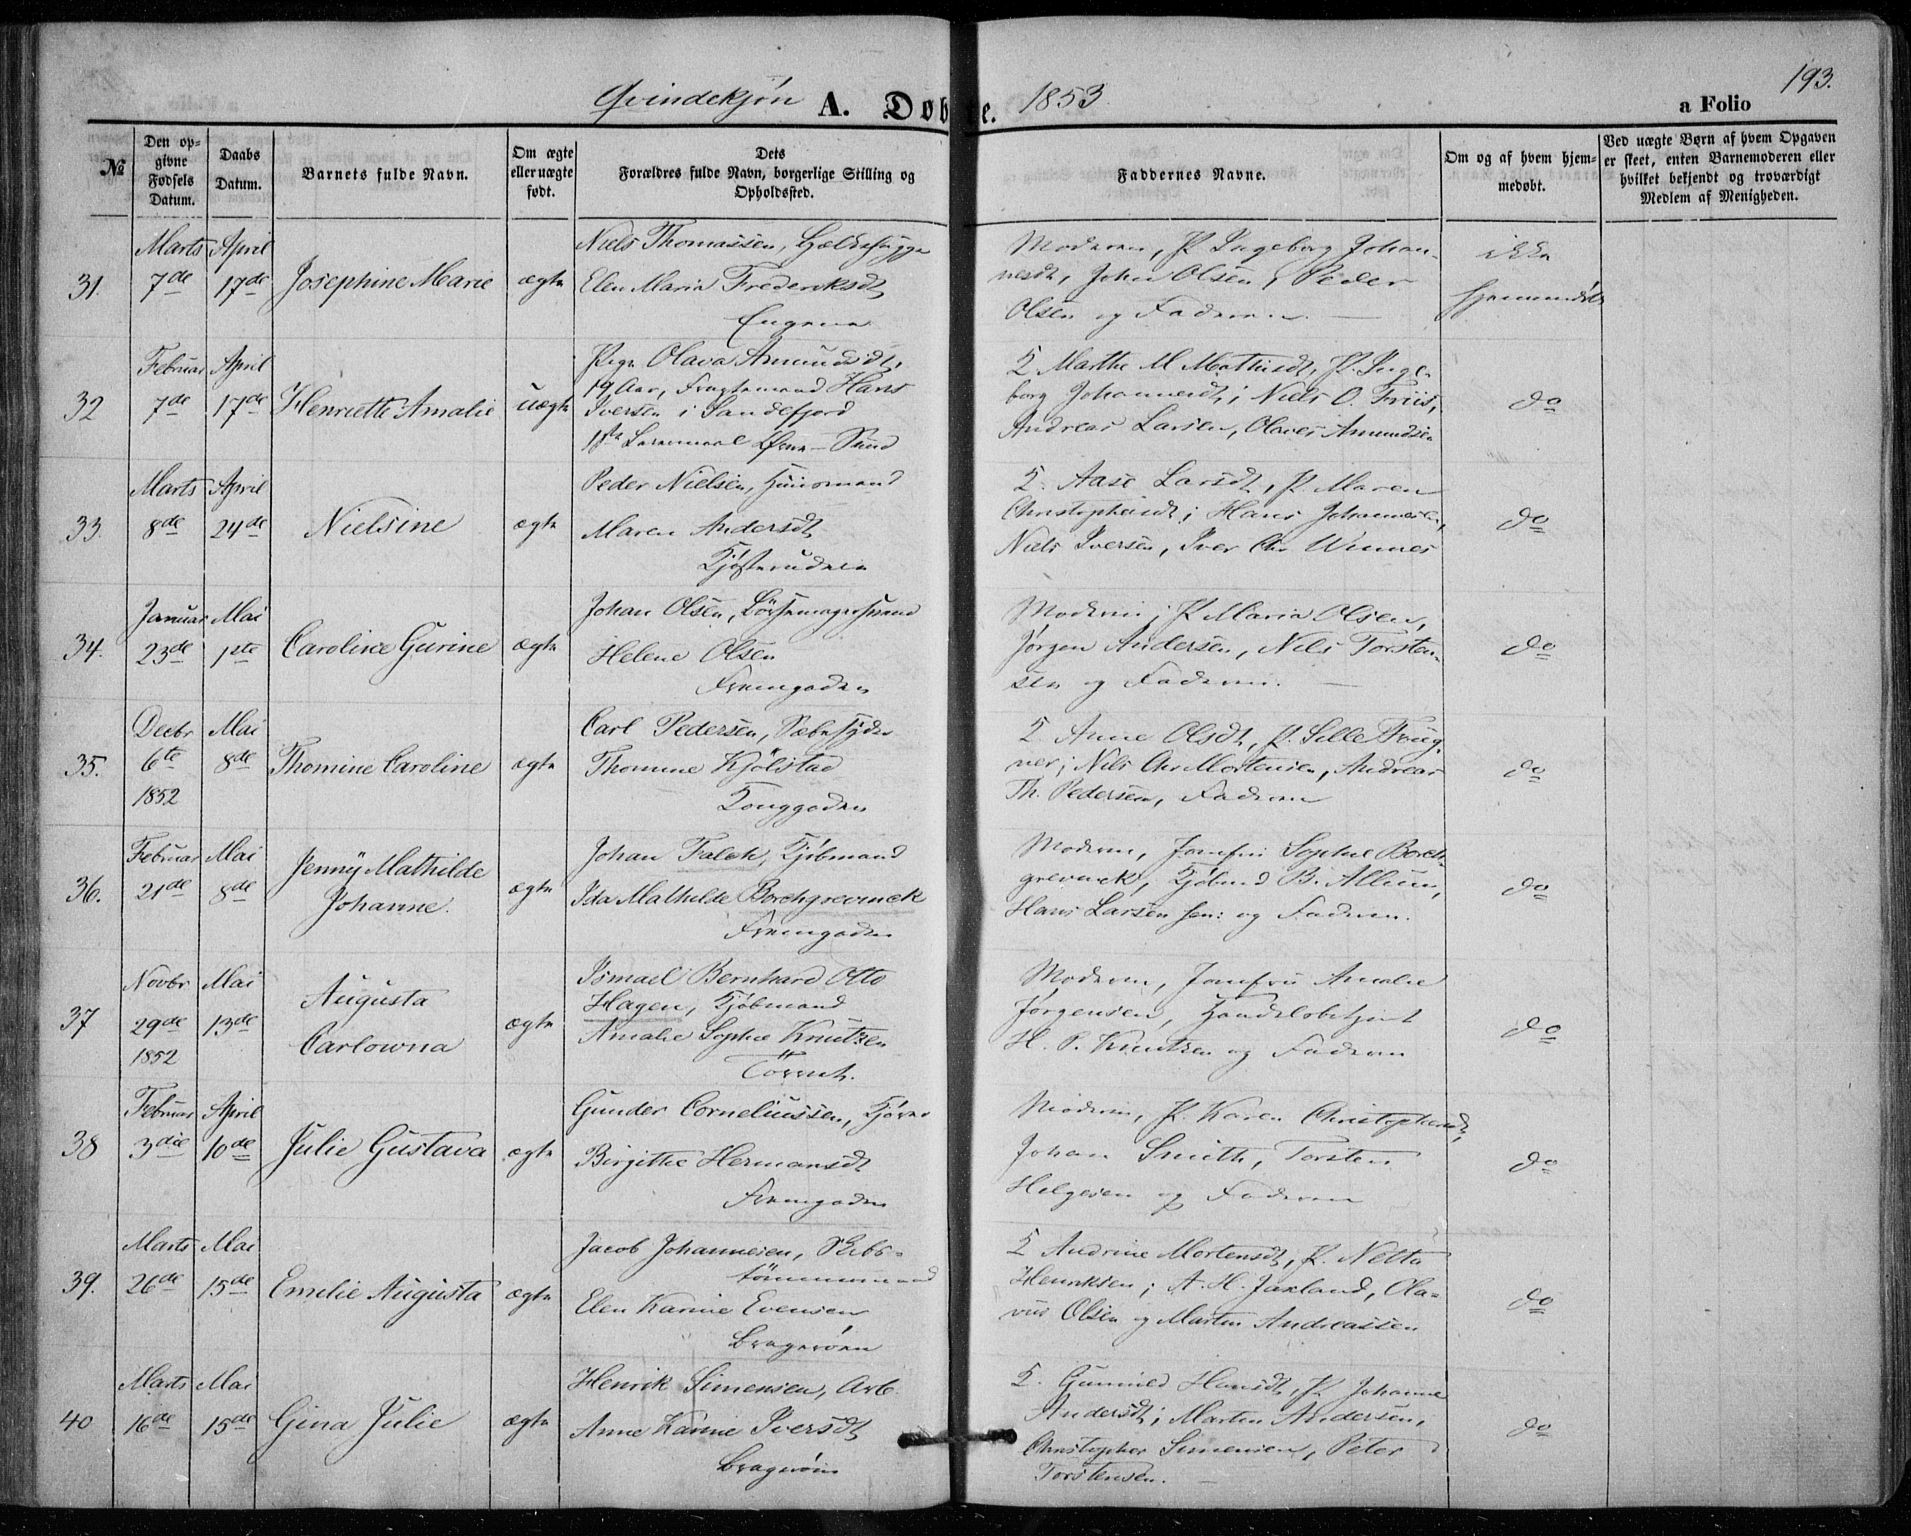 Qvindekjøn A. Døbte. 1853. a Folio 193.
№
Den opgivne Fødsels Datum.
Daabs Datum.
Barnets fulde Navn.
Om ægte eller uægte født.
Dets Forældres fulde Navn, borgerlige Stilling og Opholdssted.
Faddernes Navne.
Om og af hvem hjemmedøbt.
Ved uægte Børn af hvem Opgaven er skeet, enten Barnemoderen eller hvilket bekjendt og troværdigt Medlem af Menigheden.
31. Marts 7de April 17de Josephine Marie ægte
Niels Thomassen,
Elen Maria Frederiksdt
Engene
Moderen, P. Ingeborg Johan-
nesdt, John Olsen, Peder
Olsen og Faderen.
ikke
hjemmedøbt
32 Februar 7de April 17de Henriette Amalie uægte
Pige Olava Amundsdt,
19 Aar, Fragtemand Hans
Iversen i Sandefjord
1ste Leiermaal Øvre-Sund
2 Marthe M Mathisdt, P. Inge-
borg Johannesdt; Niels O. Friis,
Andreas Larsen, Olaves Amundsen
do
33. Marts 8de April 24de Nielsine ægte
Peder Nielsen, Huusmand
Maren Andersdt
Kjøsterudeie
2. Aase Larsdt, P. Maren
Christophersdt; Hans Johannesen,
Niels Iversen, Iver Chr Winnes
do
34. Januar 23de Mai 1ste Caroline Gurine ægte
Johan Olsen, Børsemagersvend
Helene Olsen
Fremgaden
Moderen; P. Maria Olsen,
Jørgen Andersen, Nils Torsten-
sen og Faderen.
do
35. Decbr 6te 1852 Mai 8de Thomine Caroline ægte
Carl Pedersen, Sæbesyder
Thomine Kjølstad
Tonggaden
2 Anne Olsdt, P. Sille Frug-
ner; Nils Chr Mortensen, Andreas
Th. Pedersen, Faderen
do
36. Februar 21de Mai 8de Jenny Mathilde
Johanne. ægte
Johan Falck, Kjøbmand
Ida Mathilde Borchgrevinck
Fremgaden
Moderen, Jomfru Sophie Borch-
grevinck, Kjøbmd B. Allum,
Hans Larsen sen: og Faderen.
do
37 Novbr 29de 1852 Mai 13de Augusta
Carlowna ægte
Ismael Bernhard Otto
Hagen, Kjøbmand
Amalie Sophie Knutzen
Torvet.
Moderen, Jomfru Amalie
Jørgensen, Handelsbetjent
H. P. Knutzen og Faderen
do
38 Februar 3die April 10de Julie Gustava ægte
Gunder Corneliussen, Kjører
Birgitthe Hermansdt
Fremgaden
Moderen, P. Karen Christophersdt,
Johan Smith, Torsten
Helgesen og Faderen
do
39. Marts 26de Mai 15de Emelie Augusta ægte
Jacob Johannesen, Skibs-
tømmermand
Elen Karine Evensen
Bragerøen
2 Andrine Mortensdt, P. Netta
Henriksen; A. H. Jaxland, Ola-
vus Olsen og Martin Andreassen
do
40 Marts 16de Mai 15de Gina Julie ægte
Henrik Simensen, Arb.
Anne Karine Iversdt
Bragerøen
2. Gunnild Hansdt, P. Johanne
Andersdt; Martin Andersen,
Christopher Simensen, Peter
Torstensen.
do